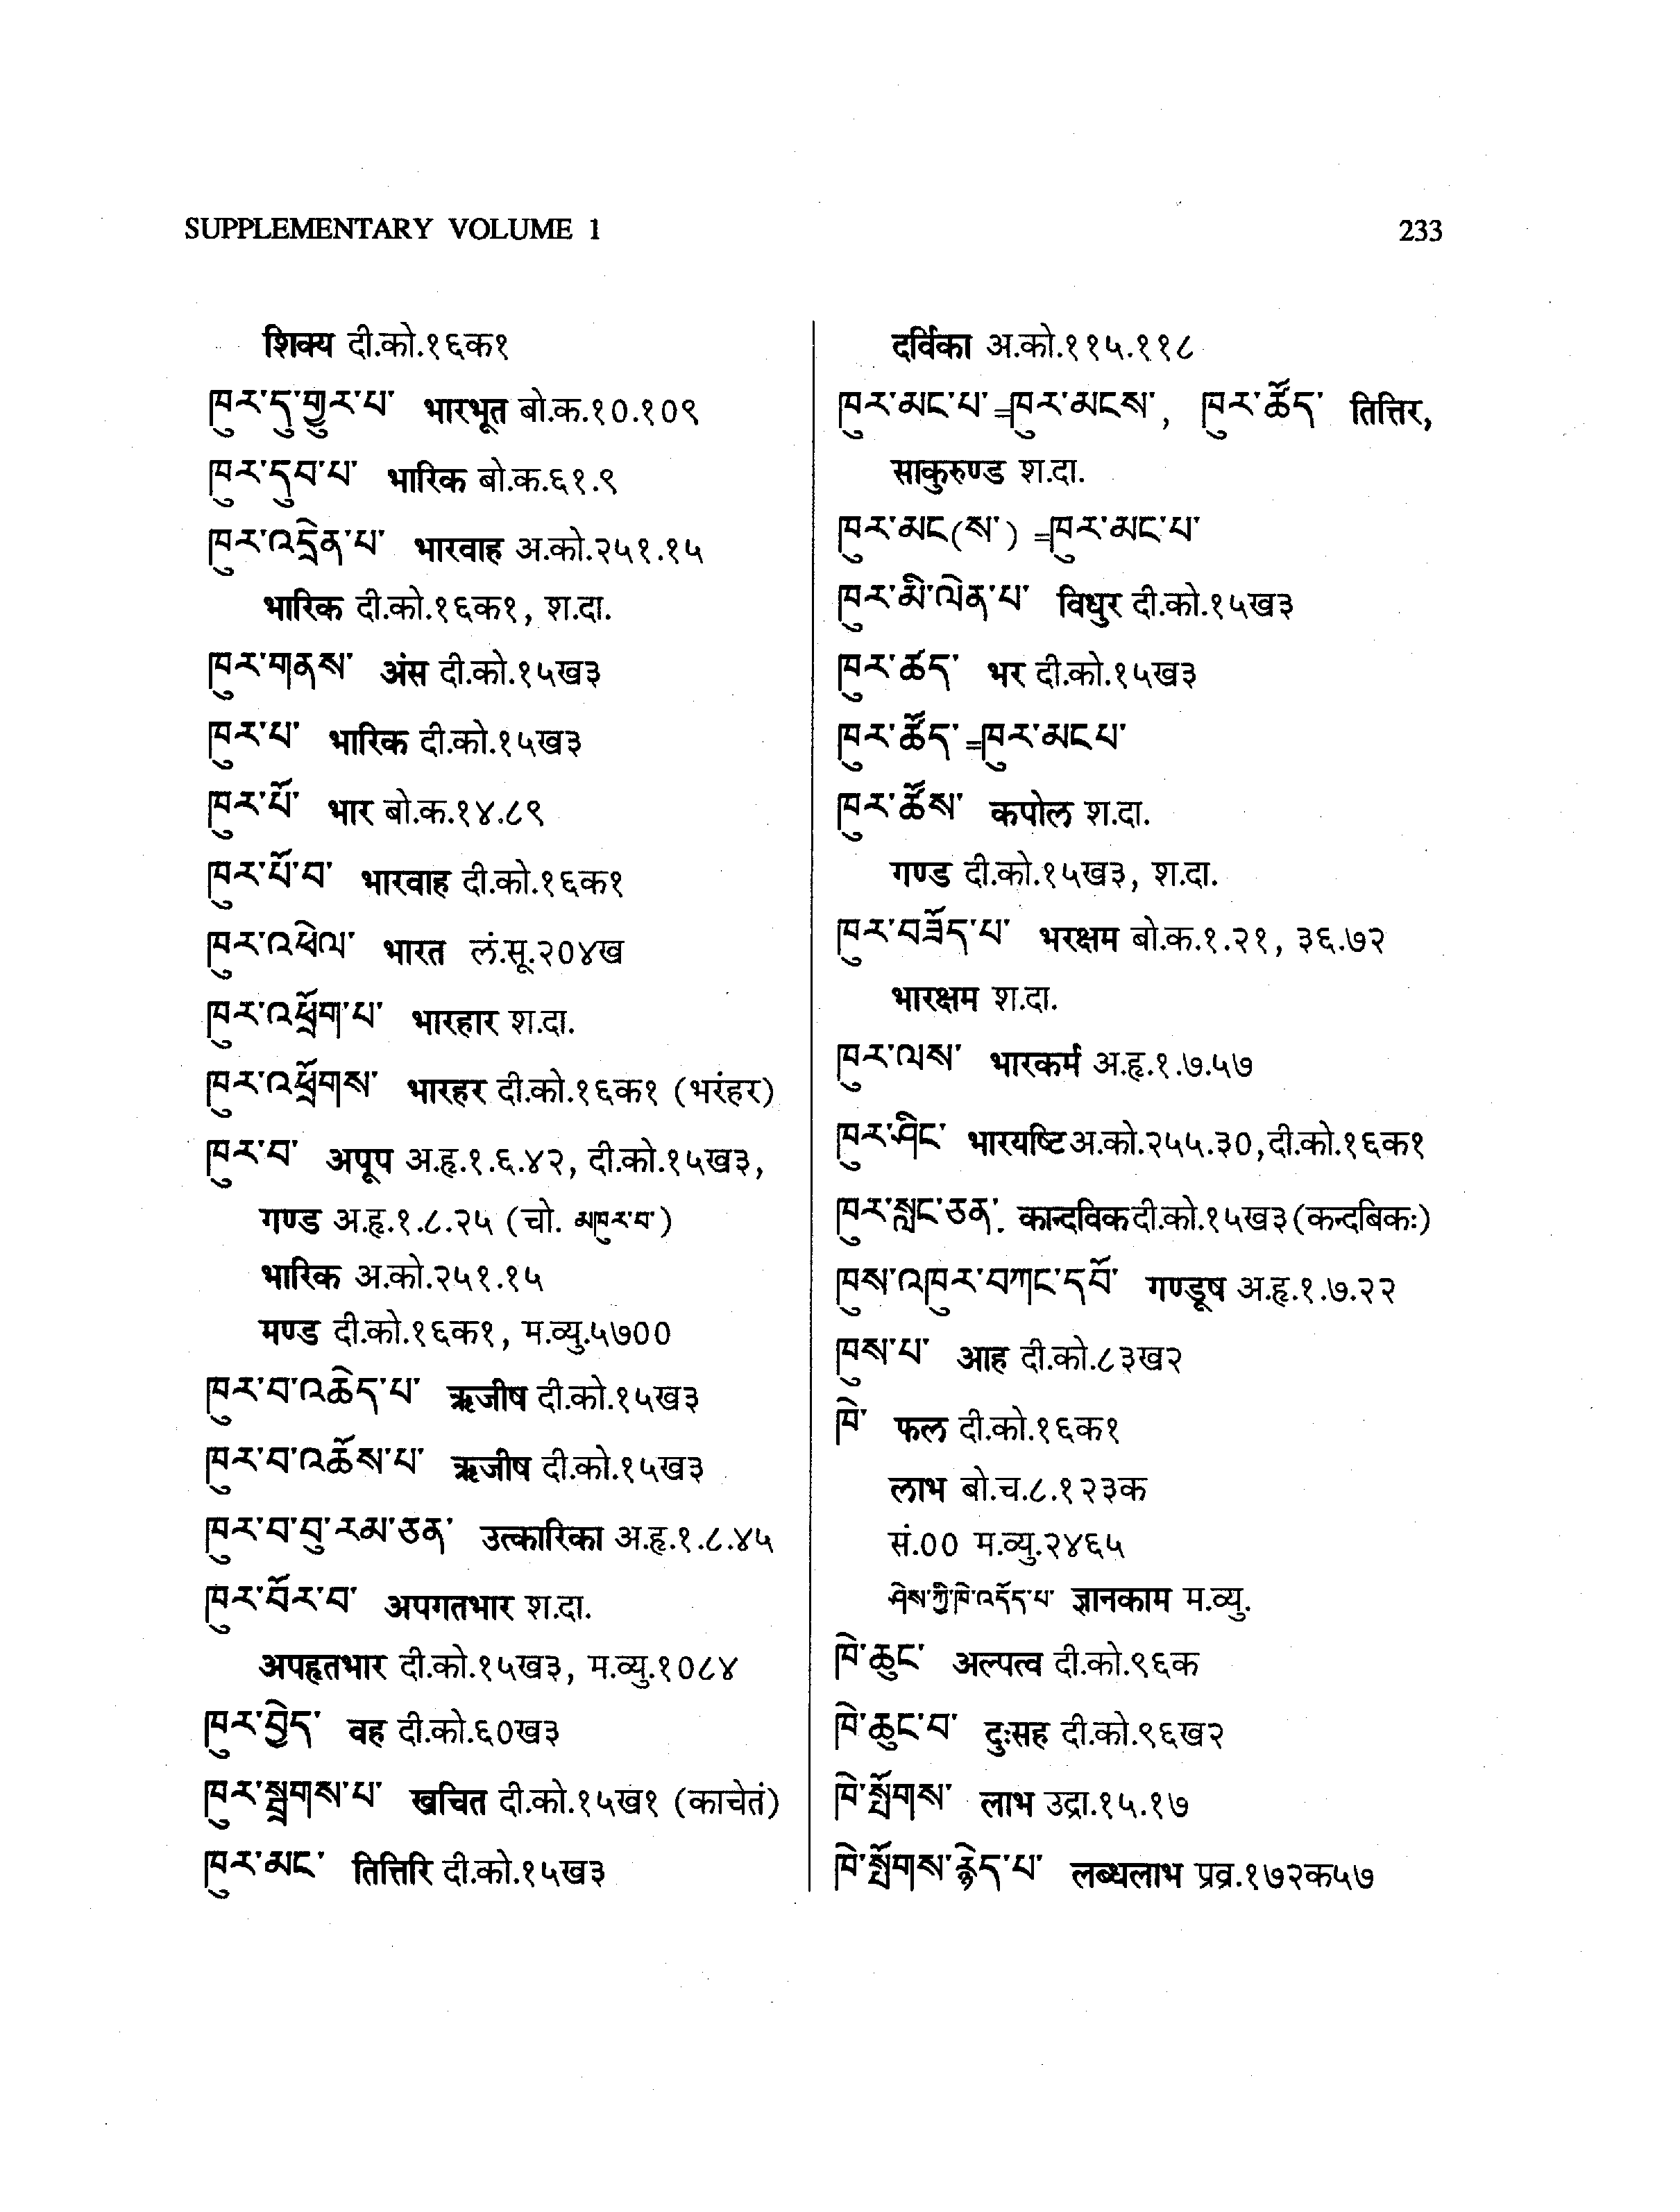 SUPPLEMENTARY VOLUME 1 233
शिक्य दी.को.१६क१
ཁུར་དུ་གྱུར་པ་ भारभूत बो.क.१०.१०९
ཁུར་དུབ་པ་ भारिक बो.क.६१.९
ཁུར་འདྲེན་པ་ भारवाह अ.को.२५१.१५
भारिक दी.को.१६क१, श.दा.
ཁུར་གནས་ अंस दी.को.१५ख३
ཁུར་པ་ भारिक दी.को.१५ख३
ཁུར་པོ་ भार बो.क.१४.८९
ཁུར་པོ་བ་ भारवाह दी.को.१६क१
ཁུར་འཕེལ་ भारत लं.सू.२०४ख
ཁུར་འཕྲོག་པ་ भारहार श.दा.
ཁུར་འཕྲོགས་ भारहर दी.को.१६क१ (भरंहर)
ཁུར་བ་ अपूप अ.हृ.१.६.४२, दी.को.१५ख३,
गण्ड अ.हृ.१.८.२५ (चो. མཁུར་བ་)
भारिक अ.को.२५१.१५
मण्ड दी.को.१६क१, म.व्यु.५७००
ཁུར་བ་འཆེད་པ་ ऋजीष दी.को.१५ख३
ཁུར་བ་འཆོས་པ་ ऋजीष दी.को.१५ख३
ཁུར་བ་བུ་རམ་ཅན་ उत्कारिका अ.हृ.१.८.४५
ཁུར་བོར་བ་ अपगतभार श.दा.
अपहृतभार दी.को.१५ख३, म.व्यु.१०८४
ཁུར་བྱེད་ वह दी.को.६०ख३
ཁུར་སྦྲགས་པ་ खचित दी.को.१५ख१ (काचेतं)
ཁུར་མང་ तित्तिरि दी.को.१५ख३
दर्विका अ.को.११५.११८
ཁུར་མང་པ་=ཁུར་མངས་, ཁུར་ཚོད་ तित्तिर,
साकुरुण्ड श.दा.
ཁུར་མང(ས་) =ཁུར་མང་པ་
ཁུར་མི་ལེན་པ་ विधुर दी.को.१५ख३
ཁུར་ཚད་ भर दी.को.१५ख३
ཁུར་ཚོད་=ཁུར་མངཔ་
ཁུར་ཚོས་ कपोल श.दा.
गण्ड दी.को.१५ख३, श.दा.
ཁུར་བཟོད་པ་ भरक्षम बो.क.१.२१, ३६.७२
भारक्षम श.दा.
ཁུར་ལས་ भारकर्म अ.हृ.१.७.५७
ཁུར་ཤིང་ भारयष्टि अ.को.२५५.३०, दी.को.१६क१
ཁུར་སླང་ཅན་. कान्दविक दी.को.१५ख३ (कन्दबिकः)
ཁུས་འཁུར་བཀང་དབོ་ गण्डूष अ.हृ.१.७.२२
ཁུས་པ་ आह दी.को.८३ख२
ཁེ་ फल दी.को.१६क१
लाभ बो.च.८.१२३क
सं.०० म.व्यु.२४६५
ཤེས་ཀྱི་ཁེ་འདོད་པ་ ज्ञानकाम म.व्यु.
ཁེ་ཆུང་ अल्पत्व दी.को.९६क
ཁེ་ཆུང་བ་ दुःसह दी.को.९६ख२
ཁེ་སྤོགས་ लाभ उद्रा.१५.१७
ཁེ་སྤོགས་རྙེད་པ་ लब्धलाभ प्रव्र.१७२क५७